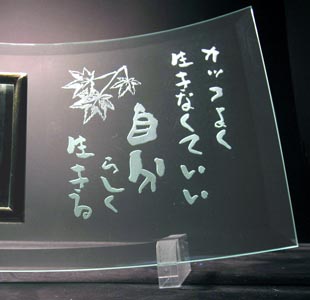 カッコよく
生きなくていい
自分
らしく
生きる